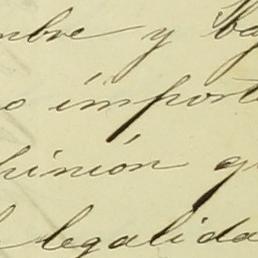 mbre y ba
o import
pinión q
legalida